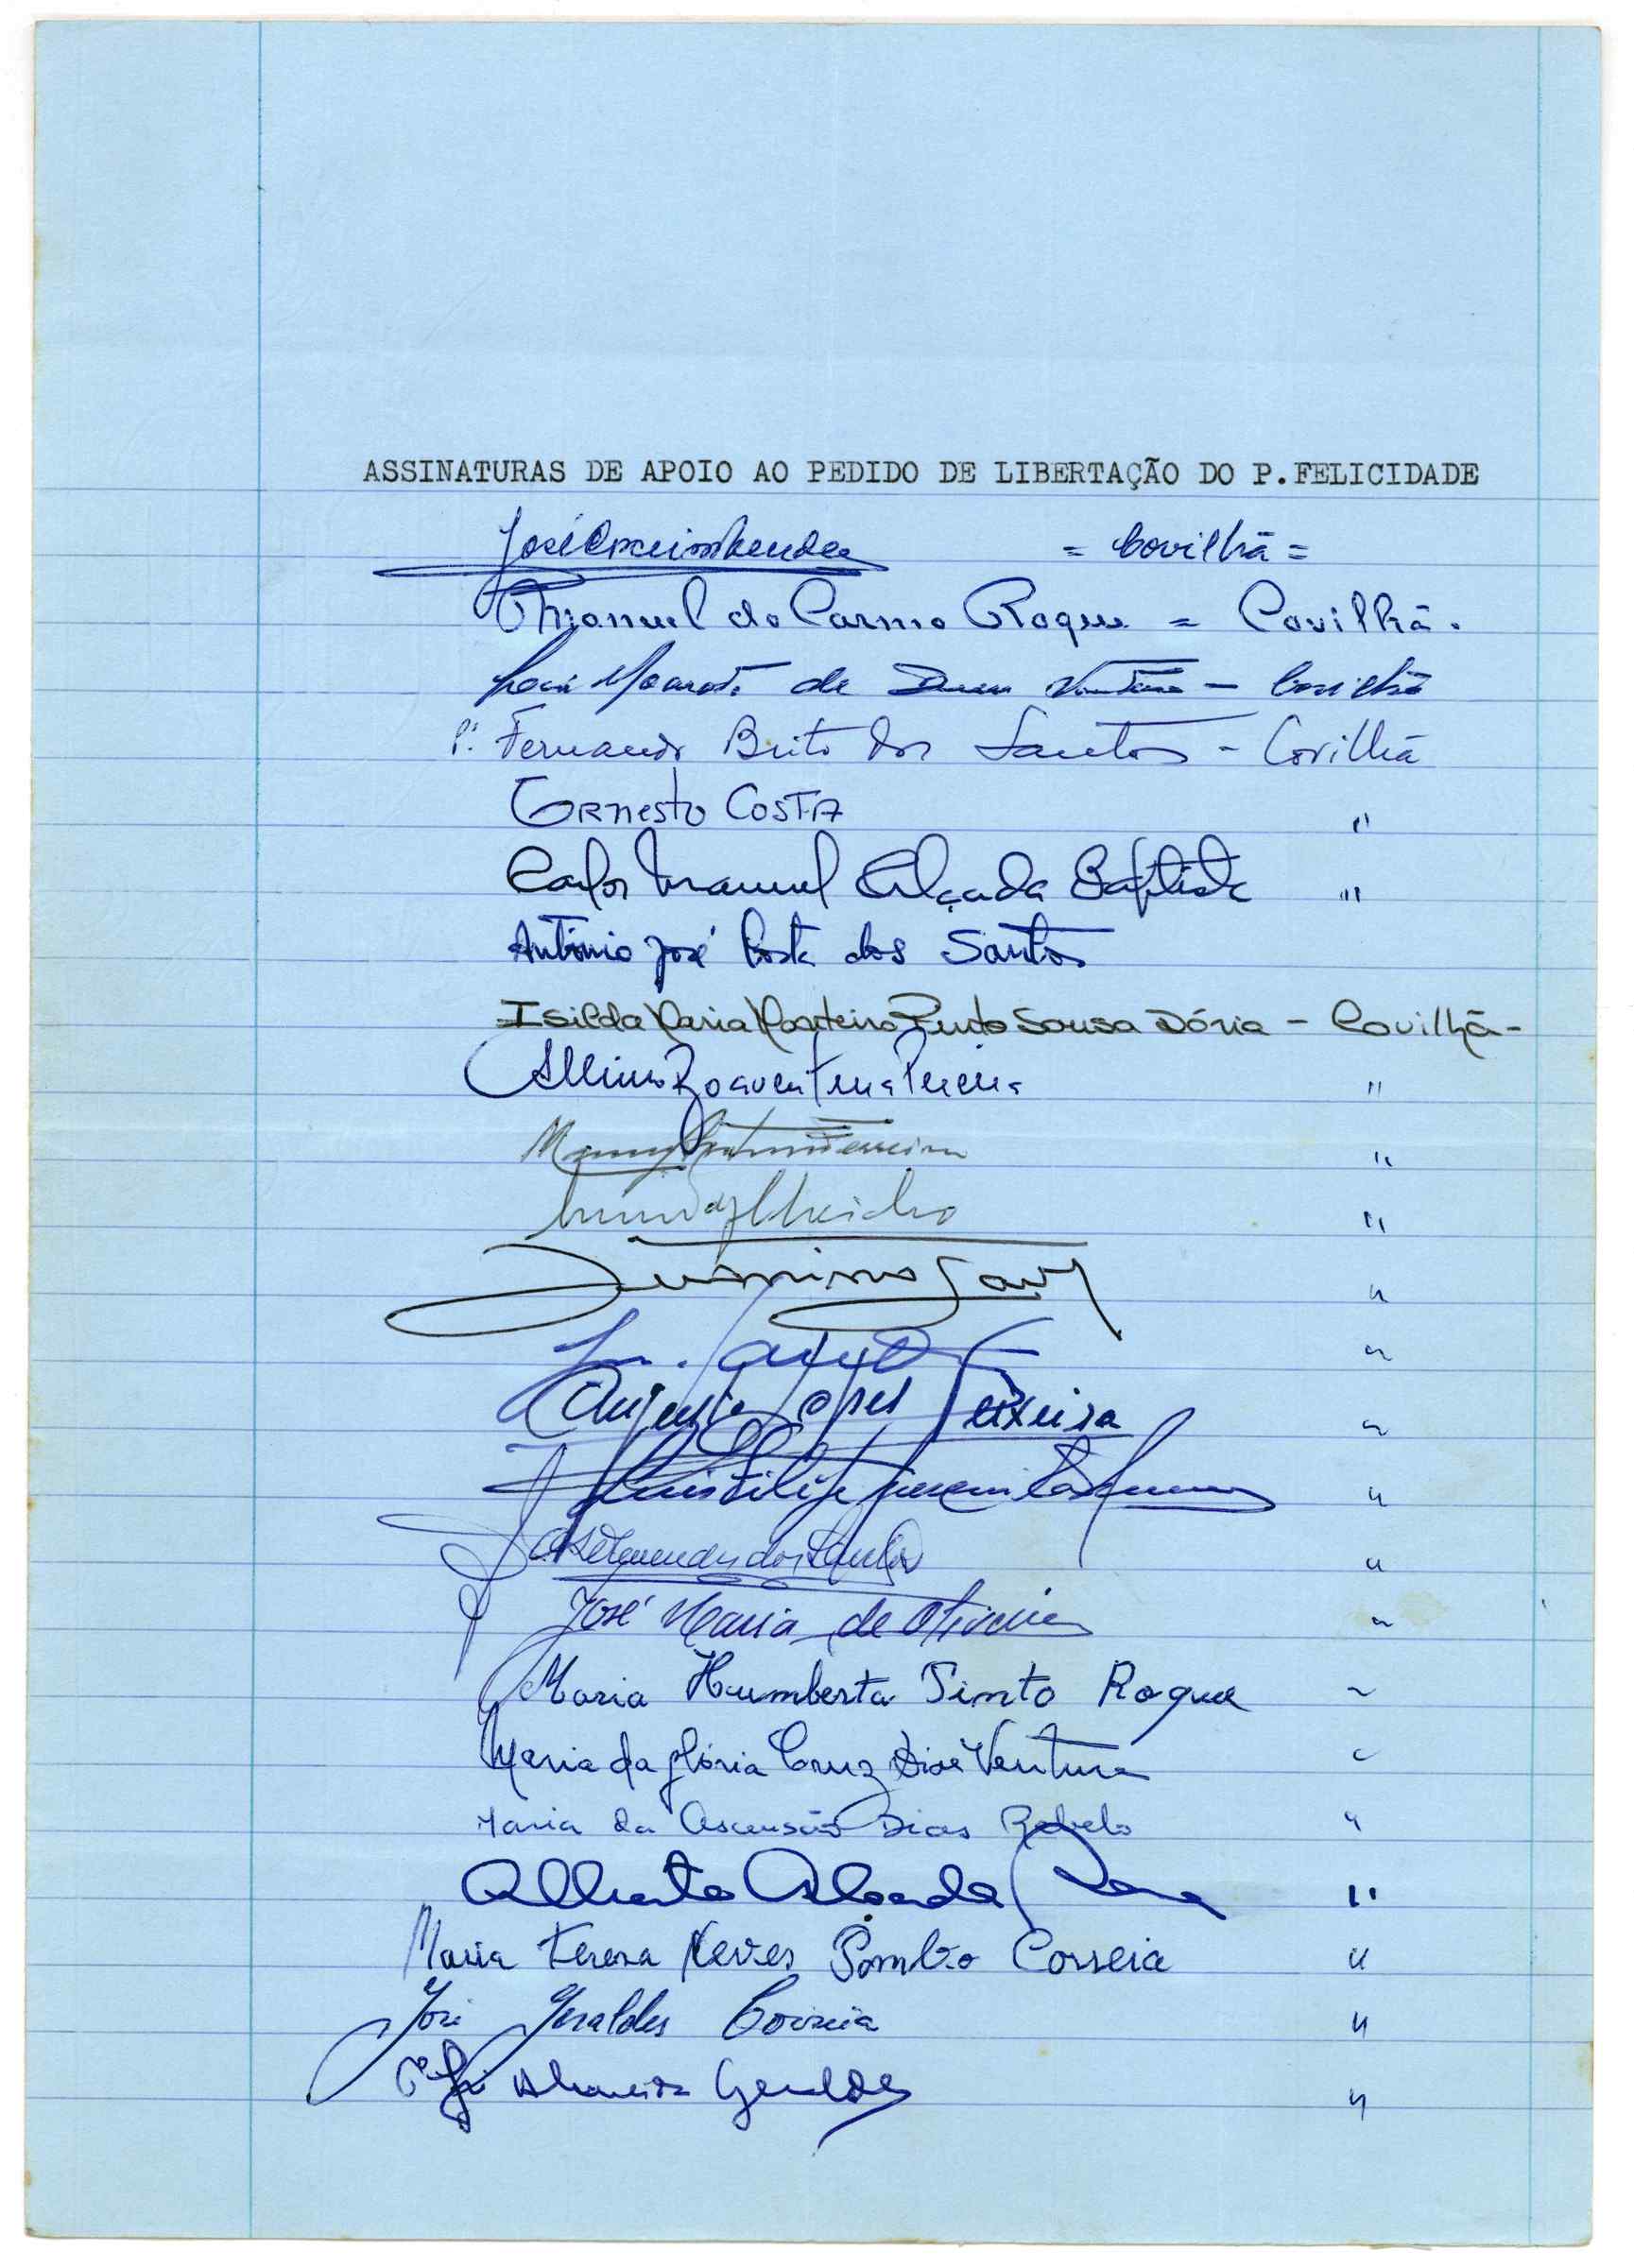 ASSINATURAS DE APOIO AO PEDIDO DE LIBERTAÇÃO DO P.FELICIDADE
José = Covilhã =
Manuel do Carmo Roque = Covilhã.
de - Covilhã
P.e Fernando Brito dos Santos - Covilhã
Ernesto Costa "
Carlos Manuel Alçada Baptista "
António José Costa dos Santos
Isilda Maria Monteiro Pinto Sousa Dória - Covilhã -
Albino Boaventura Pereira "
Manuel Ferreira "
"
Jerónimo "
"
Augusto Lopes Teixeira "
Luis Filipe "
José Mendes dos Santos "
José Maria de Oliveira "
Maria Humberta Pinto Roque "
Maria da Glória Cruz Dias Ventura "
Maria da Ascensão Dias Rebelo "
Alberto Alçada Rosa "
Maria Teresa Neves Pombo Correia "
José Geraldes Correia "
P.e José Almeida Geraldes "